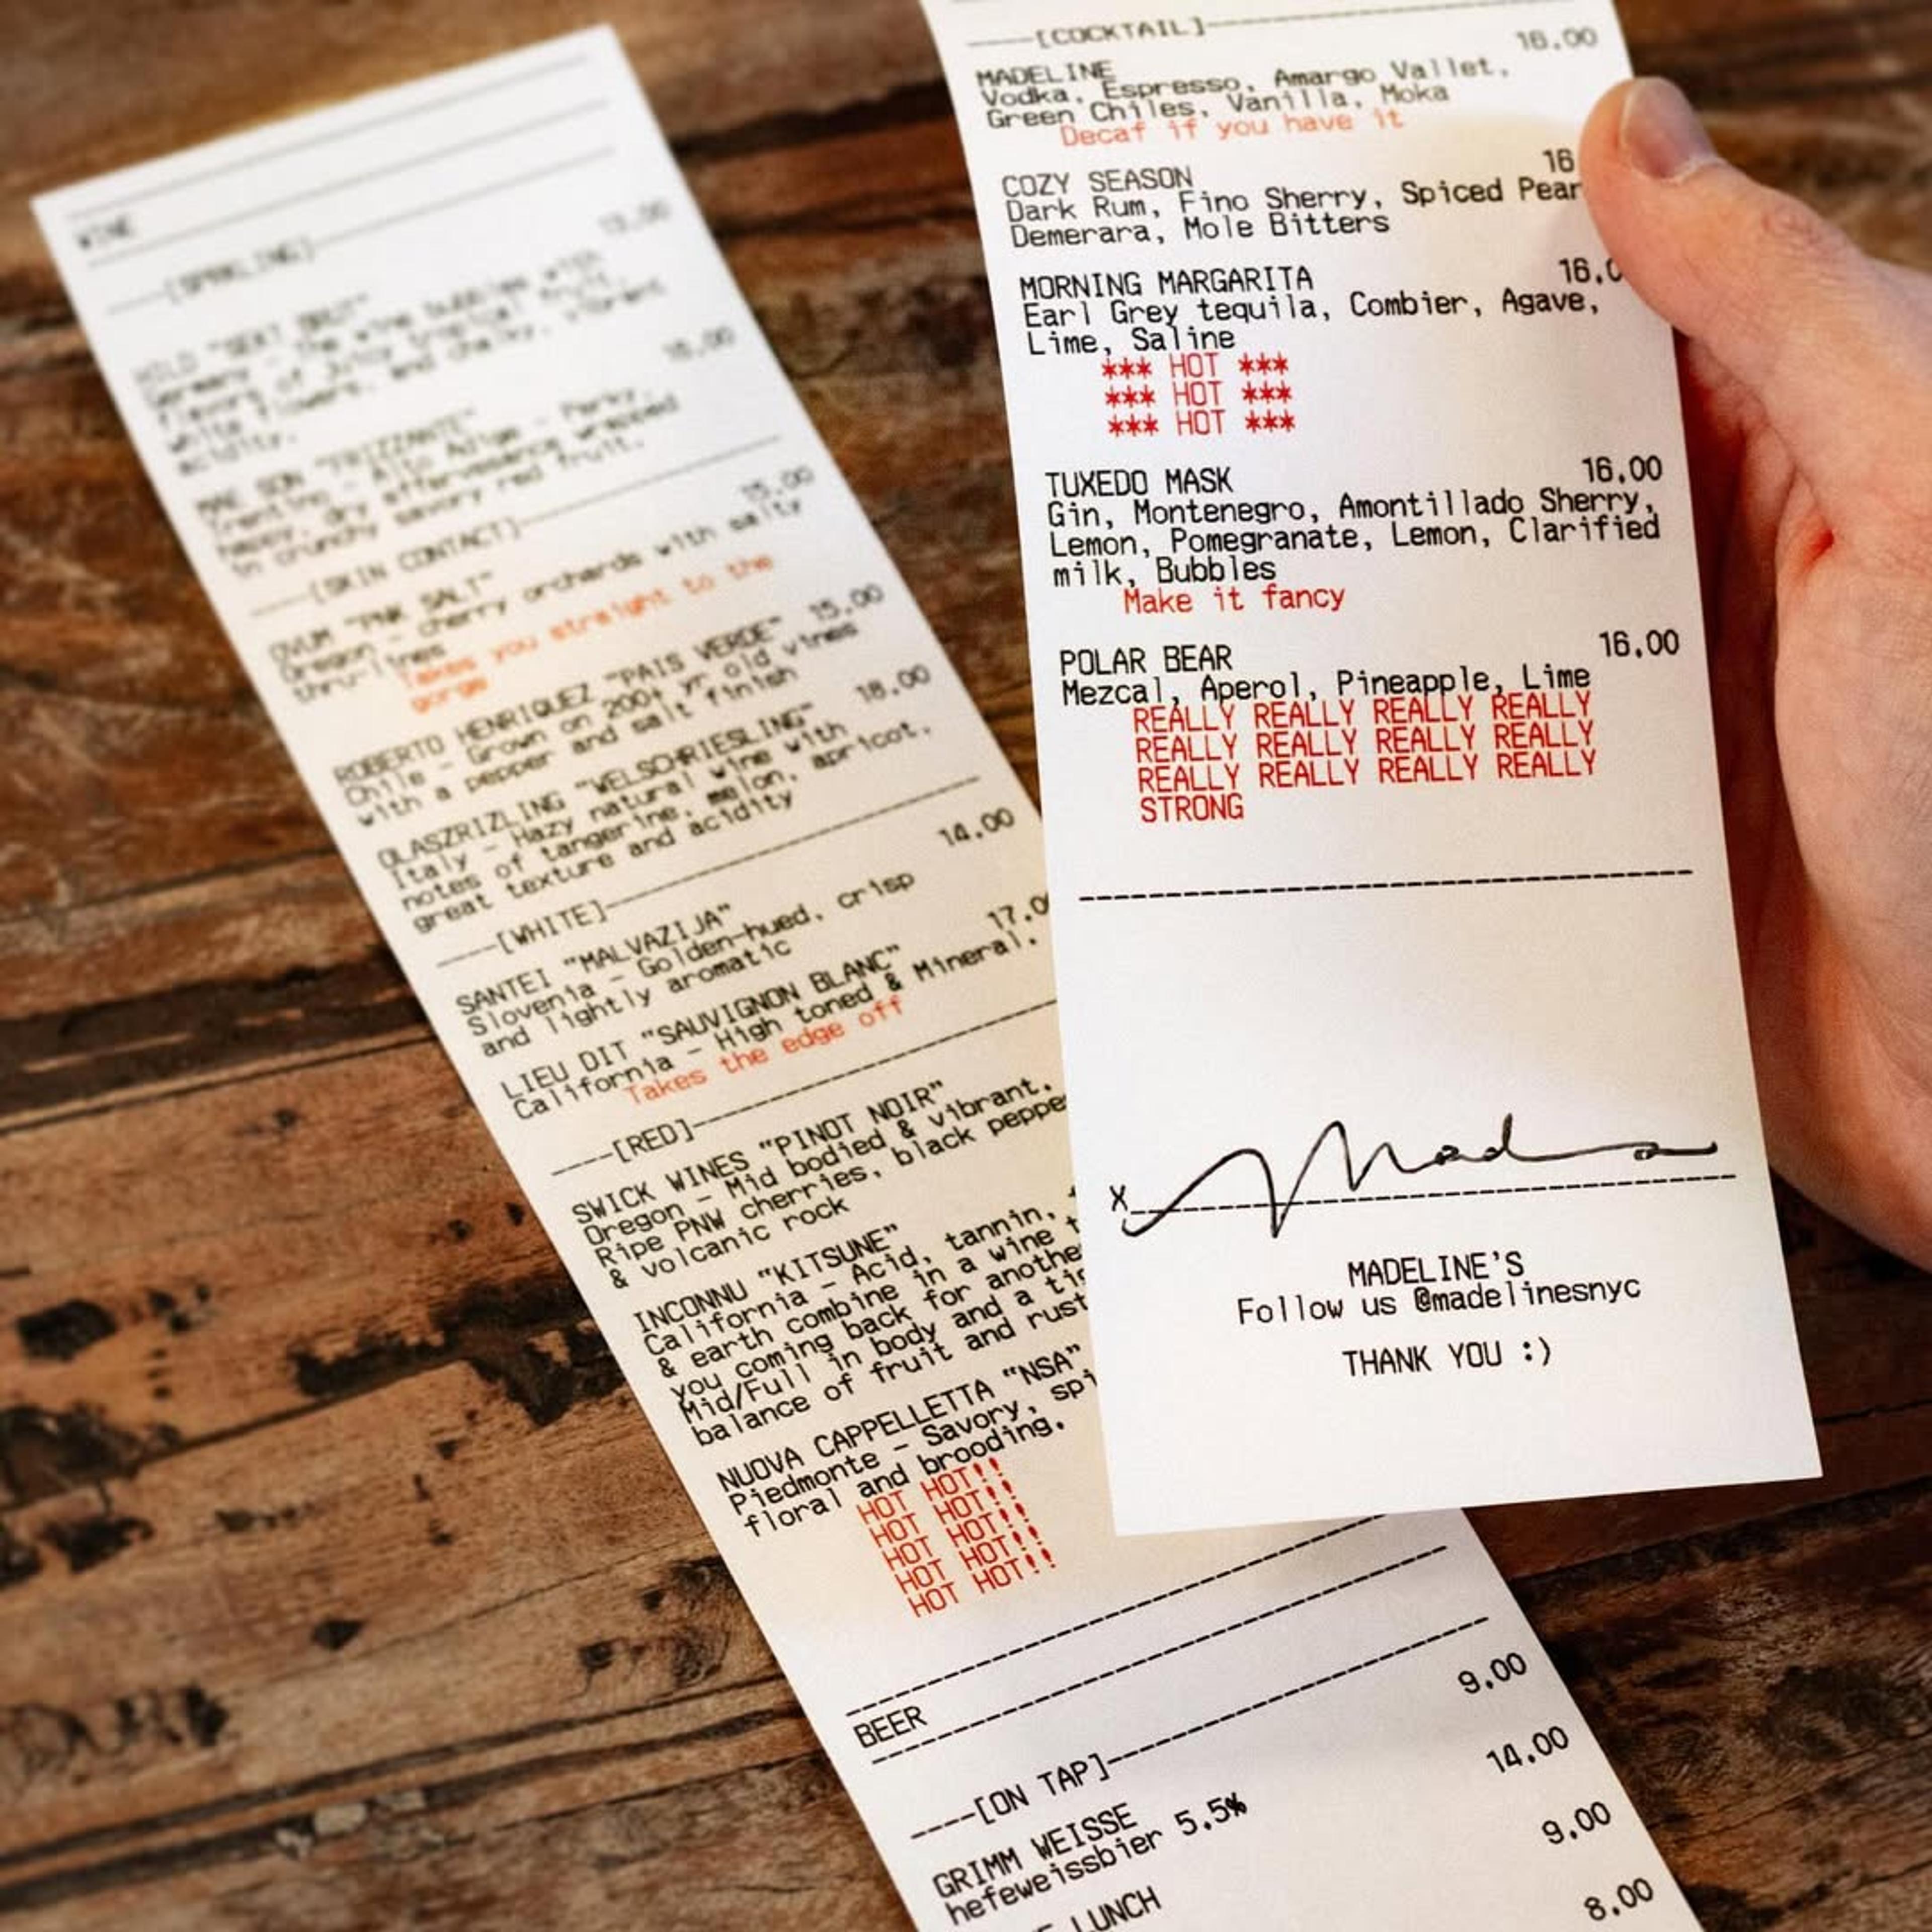 WINE
----[SPARKLING]----
13.00
WILD "SEKT BRUT"
Germany - The wine bubbles with
flavors of juicy tropical fruit,
white flowers, and chalky, vibrant
acidity.
16.00
MAE SON "FRIZZANTE"
Trentino - Alto Adige - Perky,
happy, dry effervescence wrapped
in crunchy savory red fruit.
----[SKIN CONTACT]----
15.00
OVUM "PNK SALT"
Oregon - cherry orchards with salty
thru-lines
Takes you straight to the
gorge
ROBERTO HENRIQUEZ "PAIS VERDE" 15.00
Chile - Grown on 200+ yr old vines
with a pepper and salt finish
18.00
OLASZRIZLING "WELSCHRIESLING"
Italy - Hazy natural wine with
notes of tangerine, melon, apricot,
great texture and acidity
----[WHITE]----
14.00
SANTEI "MALVAZIJA"
Slovenia - Golden-hued, crisp
and lightly aromatic
17.0
LIEU DIT "SAUVIGNON BLANC"
California - High toned & Mineral.
Takes the edge off
----[RED]----
SWICK WINES "PINOT NOIR"
Oregon - Mid bodied & vibrant.
Ripe PNW cherries, black peppe
& volcanic rock
INCONNU "KITSUNE"
California - Acid, tannin,
& earth combine in a wine t
you coming back for anothe
Mid/Full in body and a
balance of fruit and rust
NUOVA CAPPELLETTA "NSA"
Piedmonte - Savory, spi
floral and brooding.
HOT HOT!!
HOT HOT!!
HOT HOT!!
HOT HOT!!
HOT HOT!!
BEER
----[ON TAP]----
9.00
GRIMM WEISSE
hefeweissbier 5.5%
14.00
LUNCH
9.00
8.00
----[COCKTAIL]----
MADELINE 16.00
Vodka, Espresso, Amargo Vallet,
Green Chiles, Vanilla, Moka
Decaf if you have it
COZY SEASON 16
Dark Rum, Fino Sherry, Spiced Pear
Demerara, Mole Bitters
MORNING MARGARITA 16.0
Earl Grey tequila, Combier, Agave,
Lime, Saline
*** HOT ***
*** HOT ***
*** HOT ***
TUXEDO MASK 16.00
Gin, Montenegro, Amontillado Sherry,
Lemon, Pomegranate, Lemon, Clarified
milk, Bubbles
Make it fancy
POLAR BEAR 16.00
Mezcal, Aperol, Pineapple, Lime
REALLY REALLY REALLY REALLY
REALLY REALLY REALLY REALLY
REALLY REALLY REALLY REALLY
STRONG
X
MADELINE'S
Follow us @madelinesnyc
THANK YOU :)